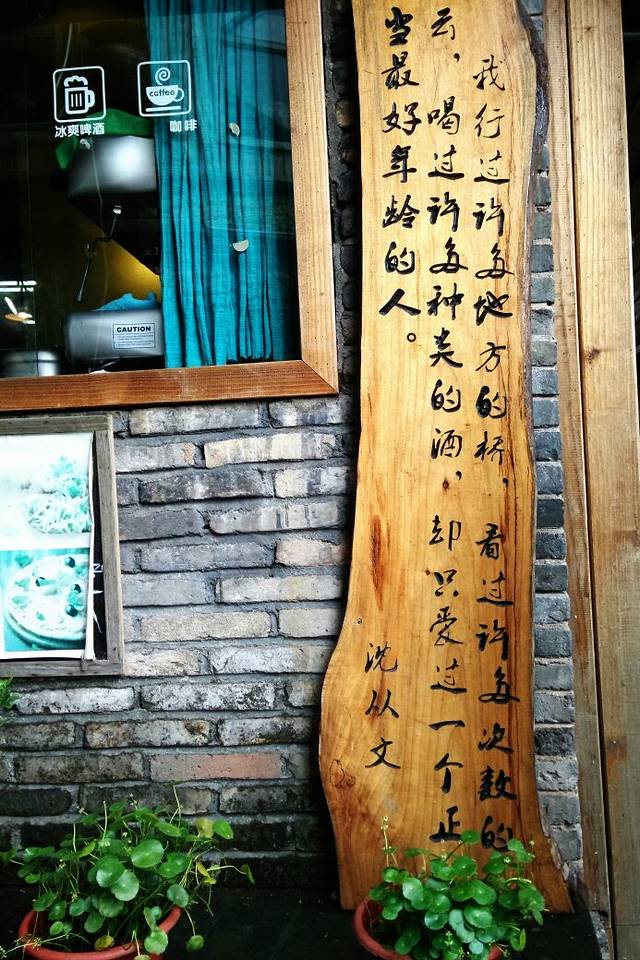 我行过许多地方的桥，看过许多次数的
云，喝过许多种类的酒，却只爱过一个正
当最好年龄的人。
沈从文
coffee
冰爽啤酒
咖啡
CAUTION